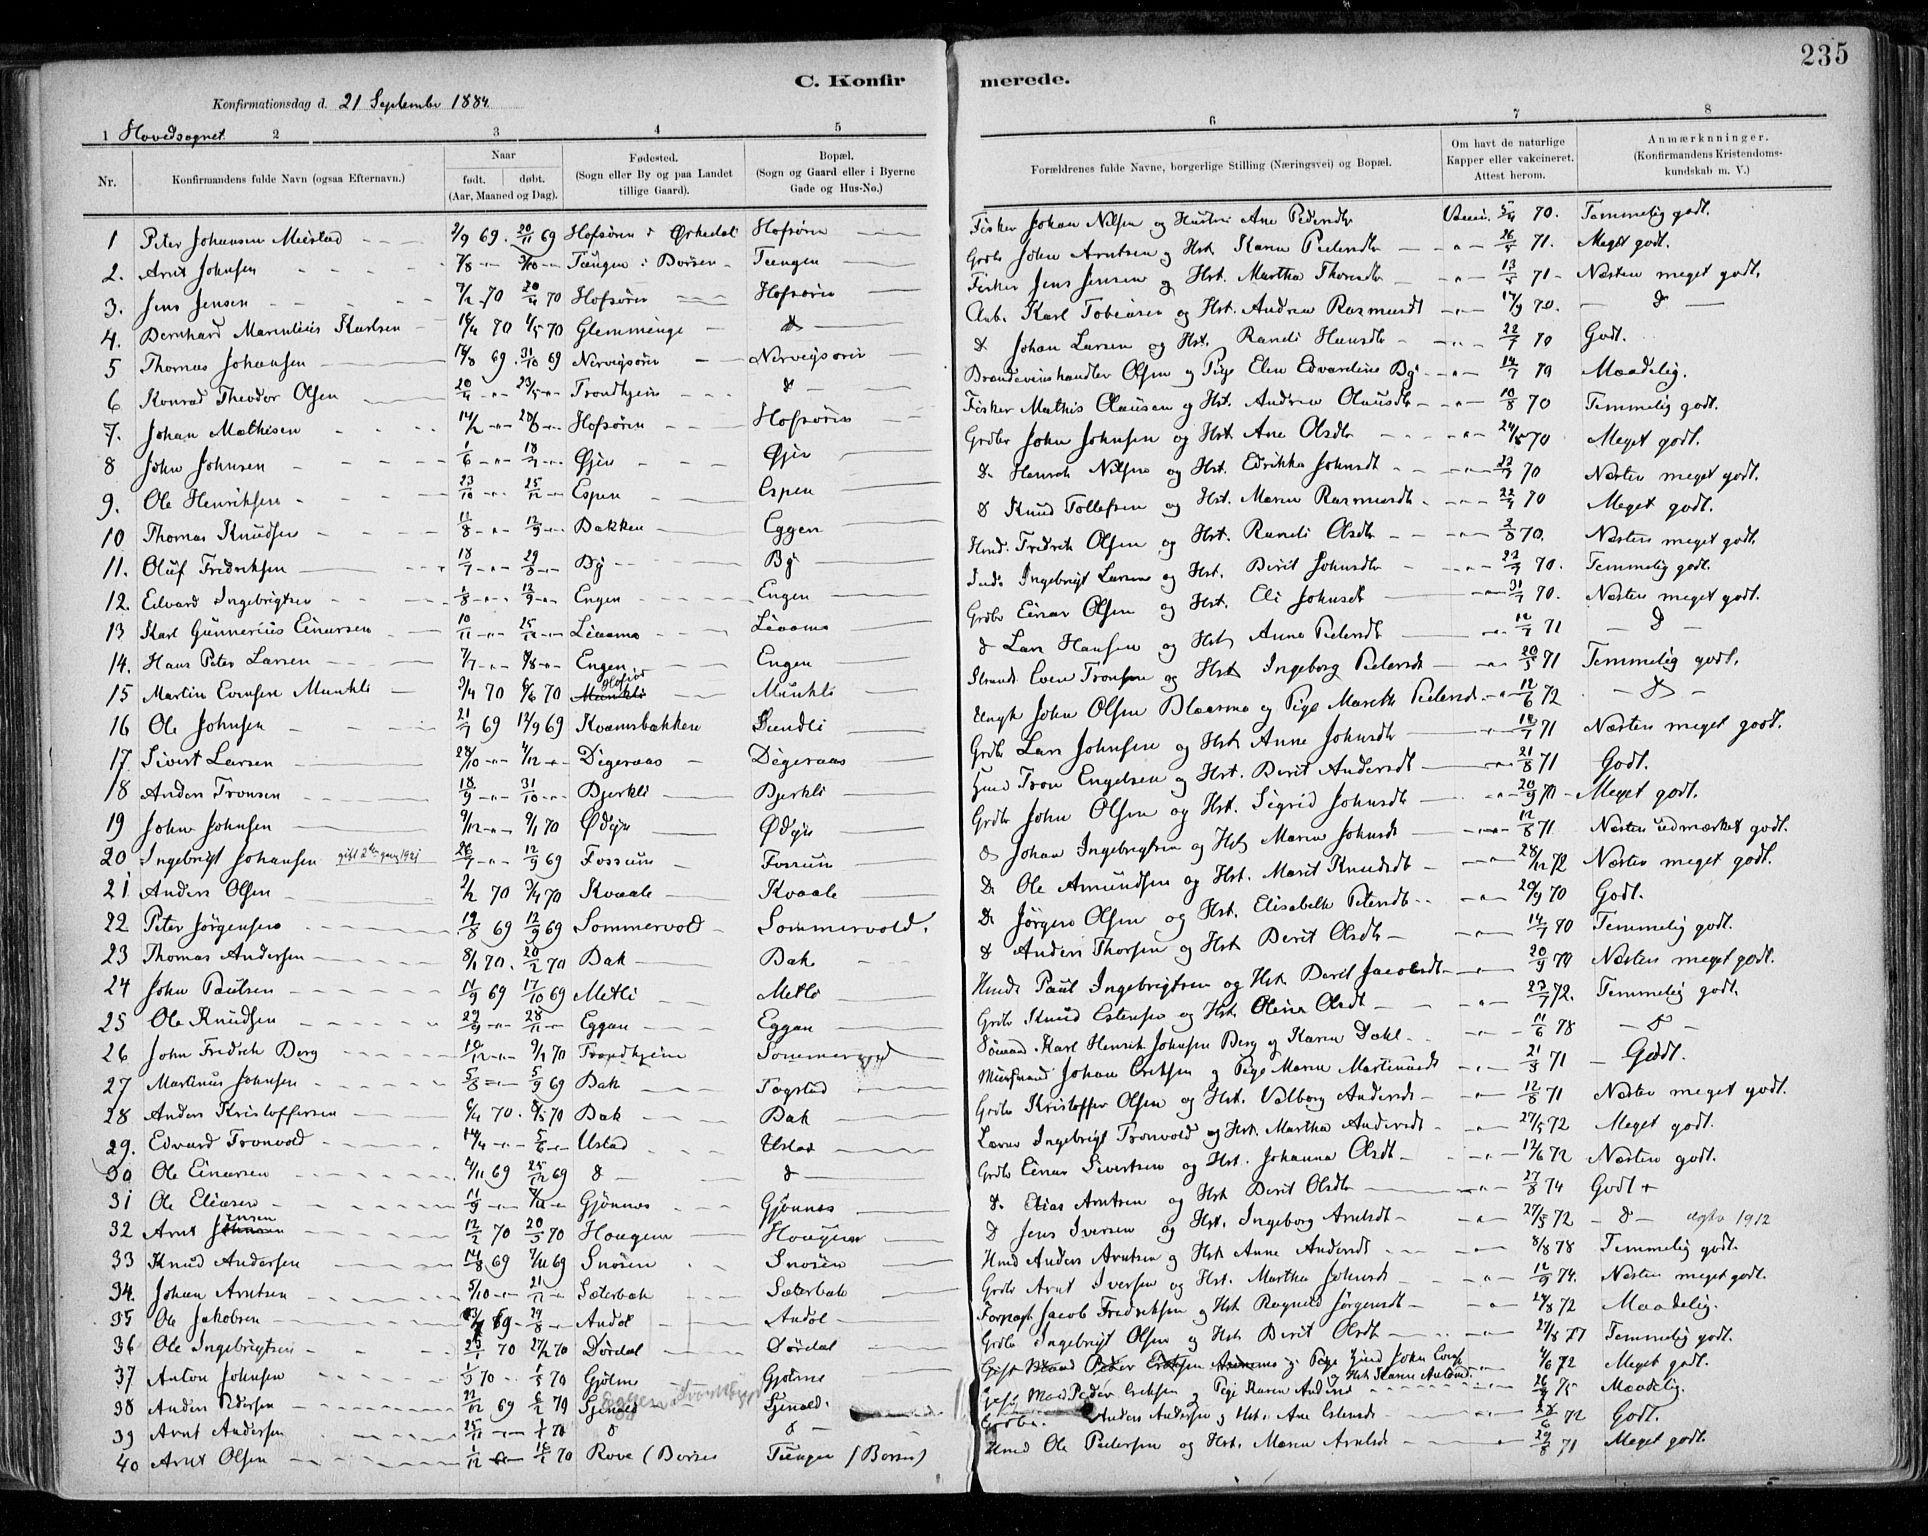 235
C. Konfirmerede.
Konfirmationsdag d. 21 September 1884.
1 Hovedsognet. 2 3 4 5 6 7 8
Nr.
Konfirmandens fulde Navn (ogsaa Efternavn.)
Naar
født. døbt.
(Aar, Maaned og Dag).
Fødested.
(Sogn eller By og paa Landet
tillige Gaard).
Bopæl.
(Sogn og Gaard eller i Byerne
Gade og Hus-No.)
Forældrenes fulde Navne, borgerlige Stilling (Næringsvei) og Bopæl.
Om havt de naturlige
Kapper eller vakcineret.
Attest herom.
Anmærkninger.
(Konfirmandens Kristendoms-
kundskab m. V.)
1 Peter Johansen Meistad 69. 20/11 69 Hofsøren i Ørkedal Hofsøren Fisker Johan Nilsen og Hustru Ane Pedersdtr Vacci. 5/4 70. Temmelig godt.
2. Arnt Johnsen Tungen i Børsen Tungen Grdbr John Arntsen og Hst. Karen Pedersdtr 26/5 71. Meget godt.
3. Jens Jensen 7/2 70 20/4 70 Hofsøren Hofsøren Fisker Jens Jensen og Hst. Martha Thoresdtr 13/5 71 Næsten meget godt.
4. Bernhard Marentius Karlsen 70 1/5 70 Glemminge d Arb. Karl Tobiasen og Hst. Andrea Rasmusdt 17/9 70. d
5 Thomas Johansen 69. 31/10 69 Nervigsøren Nervigsøren d Johan Larsen og Hst. Randi Hansdtr 22/7 70 Godt.
6 Konrad Theodor Olsen 20/4 23/5 Trondhjem d Brændevinshandler Olsen og Pige Elen Edvardine By 14/7 70 Maadelig.
7. Johan Mathisen 14/2 20/6 Hofsøren Hofsøren Fisker Mathis Olausen og Hst. Andrea Olausdtr 10/8 70 Temmelig godt.
8 John Johnsen 1/6 18/7 Øjen Øjen Grdbr John Johnsen og Hst. Ane Olsdtr 24/5 70 Meget godt.
9. Ole Henriksen 23/10 25/12 Espen Espen d. Henrik Nilsen og Hst. Edrikka Johnsdt 22/7 70 Næsten meget godt.
10 Thomas Knudsen 11/8 12/9 Bakken Eggen d Knud Tollefsen og Hst. Maren Rasmusdt 22/7 70 Meget godt.
11. Oluf Fredriksen 18/7 29/8 By By Hmd. Fredrik Olsen og Hst. Randi Olsdtr 2/8 70. Næsten meget godt.
12. Edvard Ingebrigtsen 1/8 12/9 Engen Engen Ingebrigt Larsen og Hst. Berit Johnsdtr 22/7 70. Temmelig godt.
13 Karl Gunnerius Einarsen 10/11 25/12 Livamo Livamo Grdbr Einar Olsen og Hst. Eli Johnsdt 31/7 70. Næsten meget godt.
14. Hans Peter Larsen Engen Engen d Lars Hansen og Hst. Anne Pedersdt 12/7 71 d
15 Martin Evensen Munkli 2/4 70 6/6 70 Munkli Munkli Even Tronsen og Hst Ingeborg Pedersdt 20/5 71 Temmelig godt.
16 Ole Johnsen 21/7 69 12/9 69 Kvamsbakken Sundli Ungk John Olsen Blaasmo og Pige Mareth Pedersd. 12/6 72 d
17 Sivert Larsen 28/10 Digeraas Digeraas Grdbr Lars Johnsen og Hst Anne Johnsdtr 71 Næsten meget godt.
18 Anders Tronsen 18/9 31/10 Bjerkli Bjerkli Hmd Tron Engelsen og Hst. Berit Andersdt 21/8 71 Godt.
19 John Johnsen 9/12 9/1 70 Ødejn Ødejn Grdbr John Olsen og Hst. Sigrid Johnsdtr 20/9 70 Meget godt.
20 Ingebrigt Johansen gift 2den gang 1921 26/7 12/9 69 Fossum Fossum d Johan Ingebrigtsen og Hst Maren Johnsdt 12/8 71 Næsten udmærket godt.
21 Anders Olsen 2/2 70 3/4 70 Kvaale Kvaale d. Ole Amundsen og Hst. Marit Knudsdt 28/12 72 Næsten meget godt.
22 Peter Jørgensen 19/8 69 12/9 69 Sommervold Sommervold. d. Jørgen Olsen og Hst. Elisabeth Petersdt 20/9 70 Godt.
23 Thomas Andersen 8/1 70. 20/2 70 Bak Bak d Anders Thorsen og Hst Berit Olsdtr 14/7 70 Temmelig godt.
24 John Paulsen 11/9 69 17/10 69 Metli Metli Hmd Paul Ingebrigtsen og Hst Beret Jacobsdt 20/9 70 Næsten meget godt.
25 Ole Knudsen 29/9 28/11 Eggan Eggan Grdbr Knud Estensen og Hst. Oline Olsdt 27/7 72. Temmelig godt.
26 John Fredrik Berg 9/1 70 Trondhjem Sømand Karl Henrik Johnsen Berg og Karen Dahl 11/6 78 d
27 Martinus Johnsen 5/8 5/9 69 Bak Togstad Johan Eriksen og Pige Maren Martinusdt 21/3 71 Godt.
28 Anders Kristoffersen 6/4 70. 8/5 70 Bak Bak Grdbr Kristoffer Olsen og Hst. Valborg Andersdt 12/8 71 Næsten meget godt.
29. Edvard Tronvold 14/4 5/6 Ustad Ustad Lærer Ingebrigt Tronvold og Hst. Martha Andersdt 27/5 72 Meget godt.
30 Ole Einarsen 69 25/12 69 d d Grdbr Einar Sivertsen og Hst. Johanna Olsdt 12/6 72 Næsten godt.
31 Ole Eliasen 11/9 Gjønnes Gjønnes d. Elias Arntsen og Hst Berit Olsdtr 27/8 74 Godt +
32 Arnt Jensen 12/2 70 20/3 70 Hougen Hougen d Jens Iversen og Hst. Ingeborg Arntsdt 27/5 72 d 1912
33 Knud Andersen 14/8 69 7/11 69 Snøsen Snøsen Hmd Anders Arntsen og Hst Anne Andersdt 8/8 78 Temmelig godt.
34. Johan Arntsen 5/10 21/11 Sæterbak Sæterbak Grdbr Arnt Iversen og Hst. Martha Johnsdt 12/9 74. Næsten meget godt.
35 Ole Jakobsen 69 29/8 Andøl Andøl Forpagt Jacob Fredriksen og Hst Ragnild Jørgensdt 72 Maadelig.
36 Ole Ingebrigtsen 23/1 70 27/2 70 Dørdal Dørdal Grdbr Ingebrigt Olsen og Hst Berit Olsdt 27/8 77 Temmelig godt.
37 Anton Johnsen 1/3 70 1/5 70 Gjølme Gjølme 72 Meget godt.
38 Anders Pedersen 22/12 69 6/2 70 Gift Mand Peder Eriksen og Pige Karen Andersd 26/7 75 Maadelig.
39 Arnt Andersen 25/11 70 d d Anders Andersen og Hst. Ane Estensdt 28/6 72 Godt.
40 Arnt Olsen 1/12 70 Rove (Børsen Tungen (Børsen) Hmd Ole Pedersen og Hst. Maren Arntsdt 29/8 71 Meget godt.